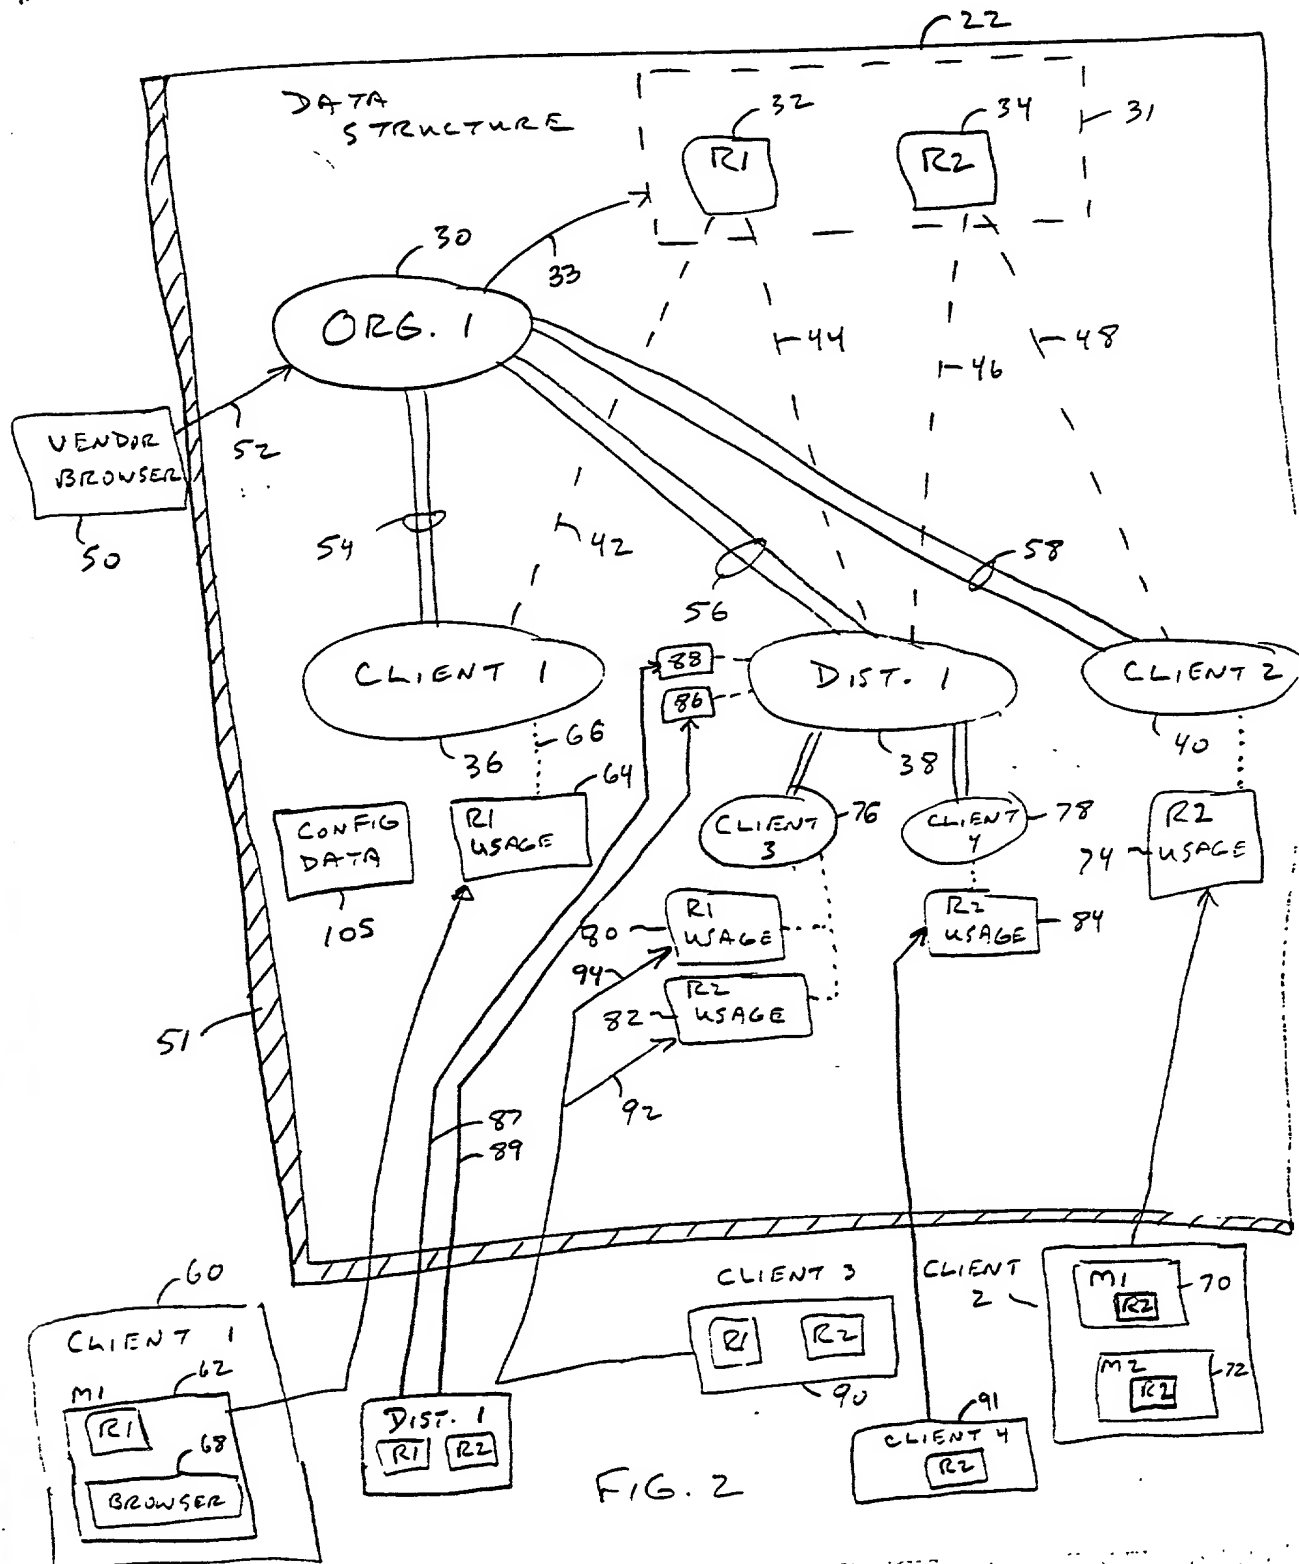 22
DATA
STRUCTURE
32
34
31
R1
R2
30
33
ORG. 1
44
48
46
52
VENDOR
BROWSER
50
54
42
56
58
CLIENT 1
88
86
DIST. 1
CLIENT 2
36
66
64
38
40
CONFIG
DATA
105
R1
USAGE
CLIENT
3
76
CLIENT
4
78
R2
USAGE
74
80
R1
USAGE
R2
USAGE
84
94
82
R2
USAGE
51
92
87
89
60
CLIENT 1
M1
62
R1
68
BROWSER
DIST. 1
R1
R2
CLIENT 3
R1
R2
90
CLIENT
2
M1
R2
70
M2
R2
72
91
CLIENT 4
R2
FIG. 2